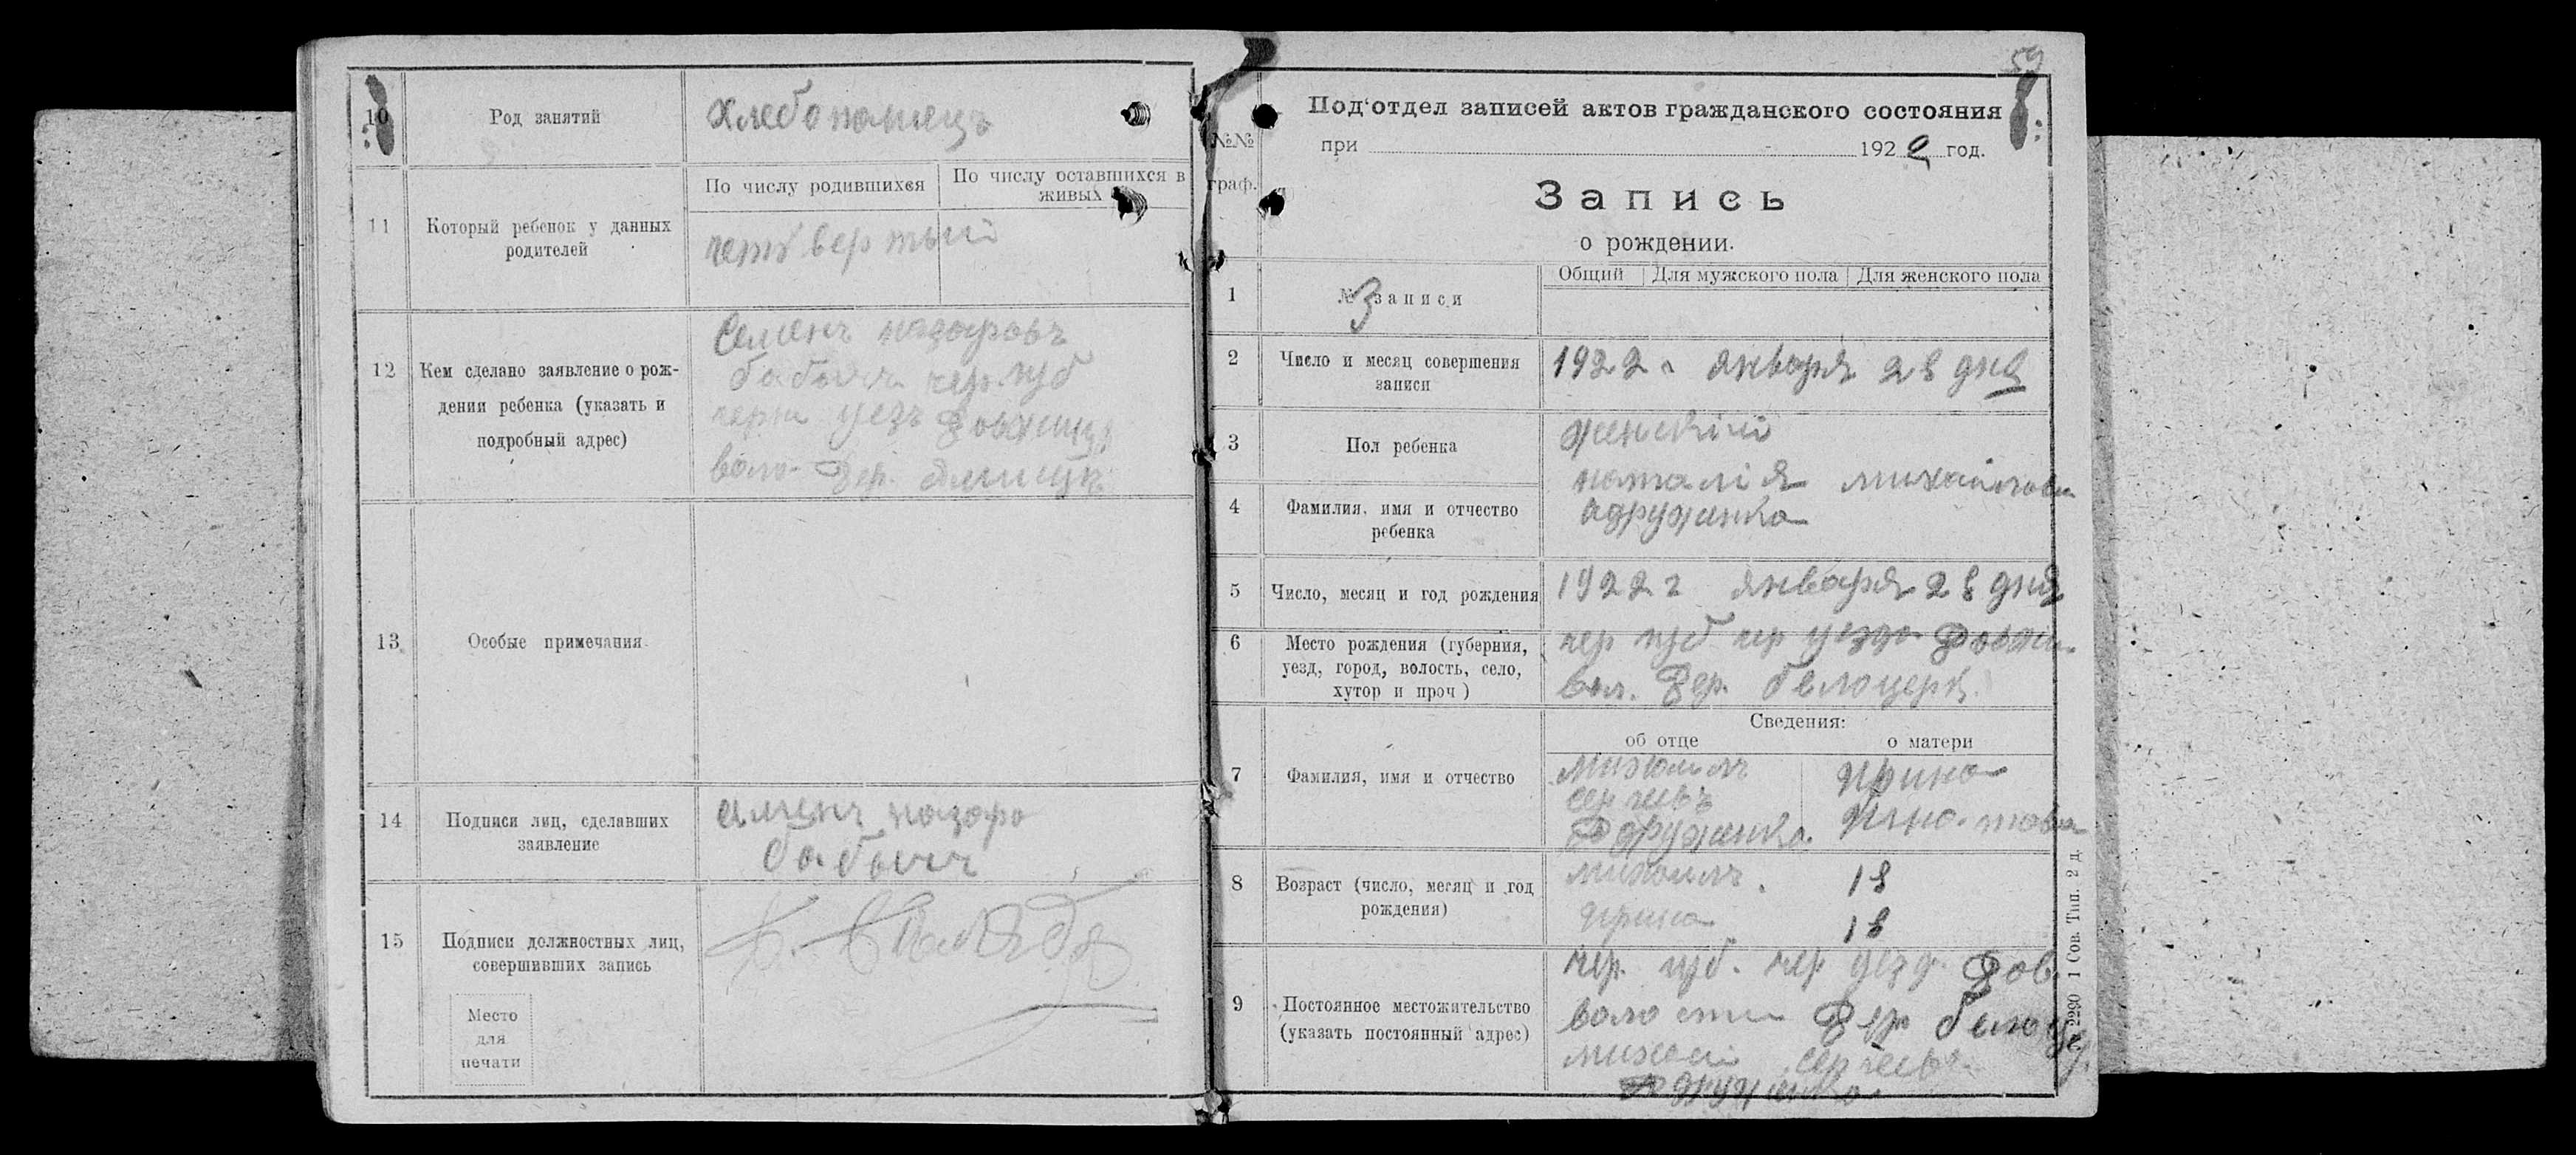 10
Род занятий
Хлебопашецъ
11
Который ребенок у данных
родителей
По числу родившихся
По числу оставшихся в
живых
четвертый
12
Кем сделано заявление о рож-
дении ребенка (указать и
подробный адрес)
Семенъ назаровъ
бабичъ чер. губ
черн уезъ
воло. Дер.
13
Особые примечания.
14
Подписи лиц, сделавших
заявление
назаро
бабичъ
15
Подписи должностных лиц,
совершивших запись
Место
для
печати
59
№№
граф.
Под'отдел записей актов гражданского состояния
при 192 год.
Запись
о рождении.
1
№ записи
3
Общий
Для мужского пола
Для женского пола
2
Число и месяц совершения
записи
1922 г января 28 дня
3
Пол ребенка
женскій
4
Фамилия, имя и отчество
ребенка
наталія михайлова
5
Число, месяц и год рождения
1922 г января 28 дня
6
Место рождения (губерния,
уезд, город, волость, село,
хутор и проч)
чер губ чер уезда
вол. Дер. белоцерк.
Сведения:
об отце
о матери
7
Фамилия, имя и отчество
Михаилъ
сергеевъ
Ирина
8
Возраст (число, месяц и год
рождения)
михаилъ. 18
Ирина 18
9
Постоянное местожительство
(указать постоянный адрес)
чер. губ. чер уезд. Дов
волости Дер белоцер.
сергеевъ
2290 1 Сов. Тип. 2 д.